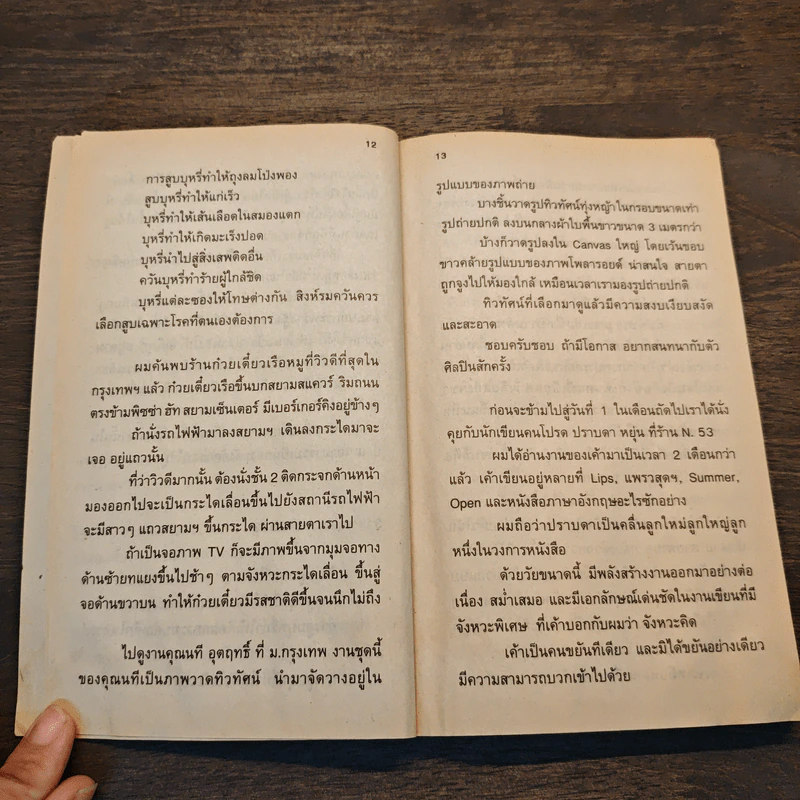 12
การสูบบุหรี่ทำให้ถุงลมโป่งพอง
สูบบุหรี่ทำให้แก่เร็ว
บุหรี่ทำให้เส้นเลือดในสมองแตก
บุหรี่ทำให้เกิดมะเร็งปอด
บุหรี่นำไปสู่สิ่งเสพติดอื่น
ควันบุหรี่ทำร้ายผู้ใกล้ชิด
บุหรี่แต่ละซองให้โทษต่างกัน สิงห์รมควันควร
เลือกสูบเฉพาะโรคที่ตนเองต้องการ
ผมค้นพบร้านก๋วยเตี๋ยวเรือหมูที่วิวดีที่สุดใน
กรุงเทพฯ แล้ว ก๋วยเตี๋ยวเรือขึ้นบกสยามสแควร์ ริมถนน
ตรงข้ามพิซซ่า ฮัท สยามเซ็นเตอร์ มีเบอร์เกอร์คิงอยู่ข้างๆ
ถ้านั่งรถไฟฟ้ามาลงสยามฯ เดินลงกระไดมาจะ
เจอ อยู่แถวนั้น
ที่ว่าวิวดีมากนั้น ต้องนั่งชั้น 2 ติดกระจกด้านหน้า
มองออกไปจะเป็นกระไดเลื่อนขึ้นไปยังสถานีรถไฟฟ้า
จะมีสาวๆ แถวสยามฯ ขึ้นกระได ผ่านสายตาเราไป
ถ้าเป็นจอภาพ TV ก็จะมีภาพขึ้นจากมุมจอทาง
ด้านซ้ายทแยงขึ้นไปช้าๆ ตามจังหวะกระไดเลื่อน ขึ้นสู่
จอด้านขวาบน ทำให้ก๋วยเตี๋ยวมีรสชาติดีขึ้นจนนึกไม่ถึง
ไปดูงานคุณนที อุตฤทธิ์ ที่ ม.กรุงเทพ งานชุดนี้
ของคุณนทีเป็นภาพวาดทิวทัศน์ นำมาจัดวางอยู่ใน
13
รูปแบบของภาพถ่าย
บางชิ้นวาดรูปทิวทัศน์ทุ่งหญ้าในกรอบขนาดเท่า
รูปถ่ายปกติ ลงบนกลางผ้าใบพื้นขาวขนาด 3 เมตรกว่า
บ้างก็วาดรูปลงใน Canvas ใหญ่ โดยเว้นขอบ
ขาวคล้ายรูปแบบของภาพโพลารอยด์ น่าสนใจ สายตา
ถูกจูงไปให้มองใกล้ เหมือนเวลาเรามองรูปถ่ายปกติ
ทิวทัศน์ที่เลือกมาดูแล้วมีความสงบเงียบสงัด
และสะอาด
ชอบครับชอบ ถ้ามีโอกาส อยากสนทนากับตัว
ศิลปินสักครั้ง
ก่อนจะข้ามไปสู่วันที่ 1 ในเดือนถัดไปเราได้นั่ง
คุยกับนักเขียนคนโปรด ปราบดา หยุ่น ที่ร้าน N. 53
ผมได้อ่านงานของเค้ามาเป็นเวลา 2 เดือนกว่า
แล้ว เค้าเขียนอยู่หลายที่ Lips, แพรวสุดฯ, Summer,
Open และหนังสือภาษาอังกฤษอะไรซักอย่าง
ผมถือว่าปราบดาเป็นคลื่นลูกใหม่ลูกใหญ่ลูก
หนึ่งในวงการหนังสือ
ด้วยวัยขนาดนี้ มีพลังสร้างงานออกมาอย่างต่อ
เนื่อง สม่ำเสมอ และมีเอกลักษณ์เด่นชัดในงานเขียนที่มี
จังหวะพิเศษ ที่เค้าบอกกับผมว่า จังหวะคิด
เค้าเป็นคนขยันทีเดียว และมิได้ขยันอย่างเดียว
มีความสามารถบวกเข้าไปด้วย